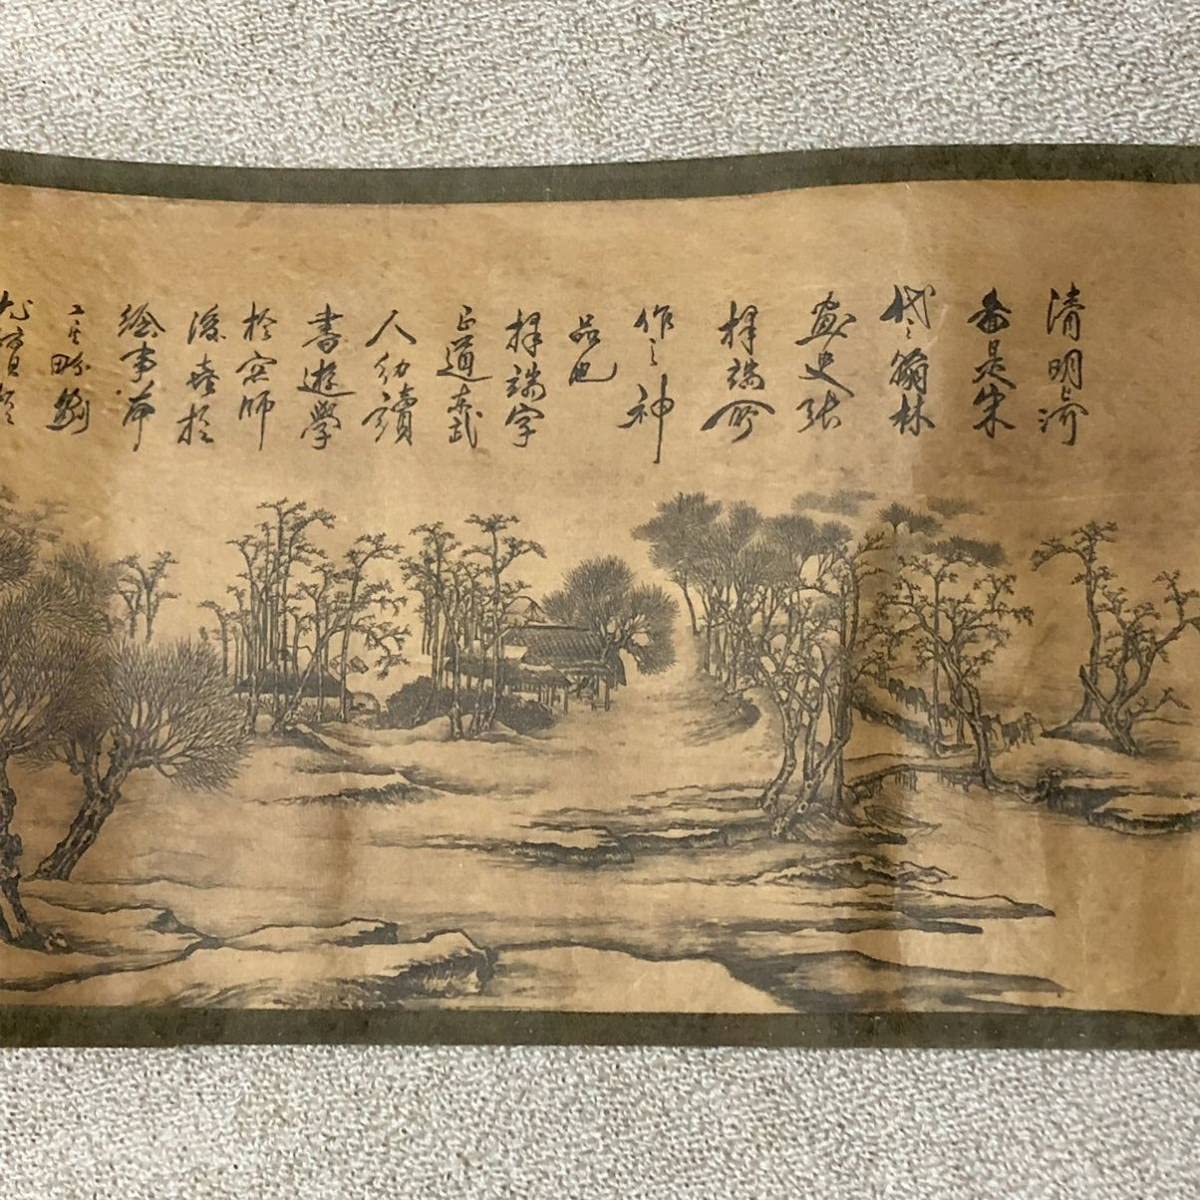 清明上河
畵是朱
代〻翰林
畫史張
擇端所
作之神
品也
擇端字
正道東武
人幼讀
書遊學
於京師
後喜於
繪事本
工其界劃
尤